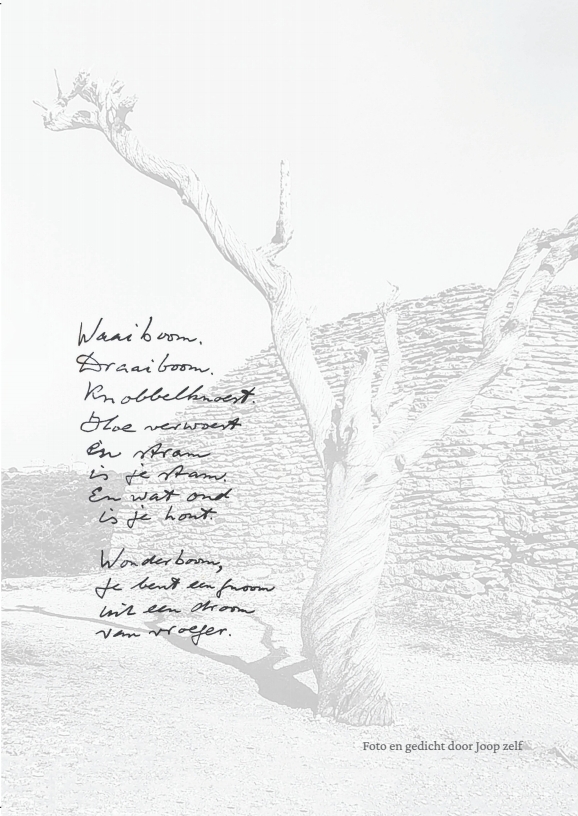 Waaiboom.
Draaiboom.
Knobbelknoest.
Hoe verwoest
En stram
is je stam.
En wat oud
is je hout.
Wonderboom,
Je bent een gnoom
uit een droom
van vroeger.
Foto en gedicht door Joop zelf